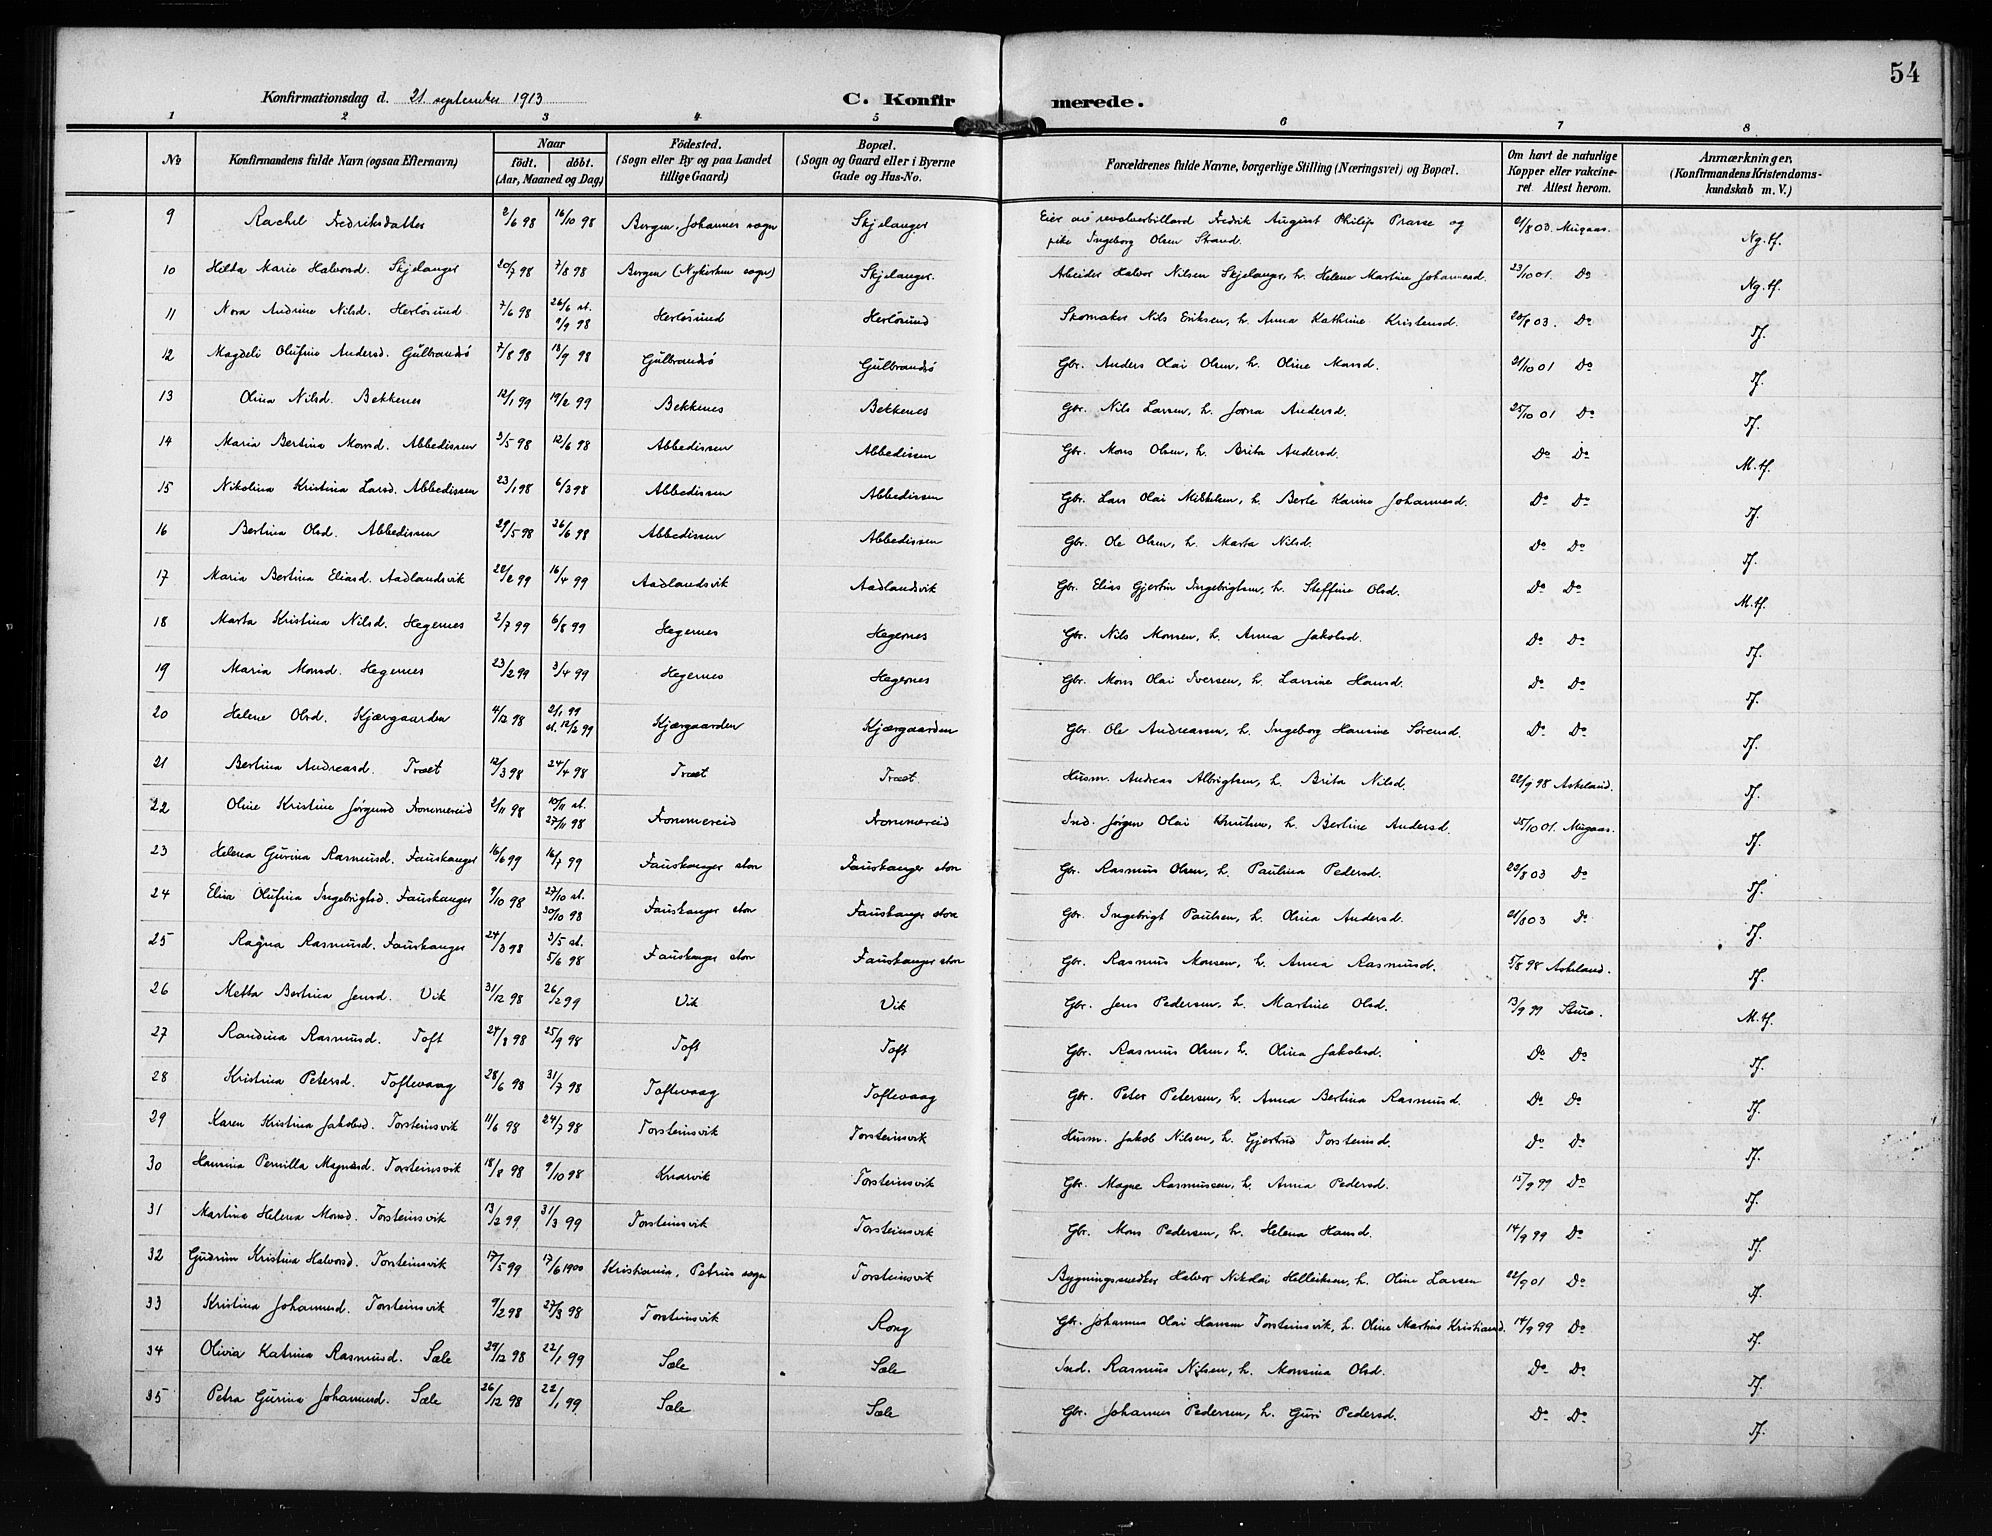 54
Konfirmationsdag d. 21 september 1913
C. Konfirmerede.
1 2 3 4 5 6 7 8
No
Konfirmandens fulde Navn (ogsaa Efternavn)
Naar
født. døbt.
(Aar, Maaned og Dag)
Fødested.
(Sogn eller By og paa Landet
tillige Gaard)
Bopæl.
(Sogn og Gaard eller i Byerne
Gade og Hus-No.
Forældrenes fulde Navne, borgerlige Stilling (Næringsvei) og Bopæl.
Om havt de naturlige
Kopper eller vakcine-
ret. Attest herom.
Anmærkninger,
(Konfirmandens Kristendoms-
kundskab m. V.)
9 Rachel Fredriksdatter 2/6 98 16/10 98 Bergen, Johannes sogn Skjelanger Eier av revolverbillard Fredrik August Philip Prasse og
pike Ingeborg Olsen Strand. 21/8 03. Mugaas. Ng. tf.
10 Hilda Marie Halvorsd. Skjelanger 20/7 98 7/8 98 Bergen (Nykirken sogn) Skjelanger. Arbeider Halvor Nilsen Skjelanger, h. Helene Martine Johannesd. 23/10 01. Do Ng. tf.
11 Nora Andrine Nilsd. Herløsund 7/6 98 26/6 st.
9/9 98 Herløsund Herløsund Skomaker Nils Eriksen, h. Anna Kathrine Kristensd. 20/8 03. Do Tf.
12 Magdeli Olufine Andersd. Gulbrandsø 7/8 98 18/9 98 Gulbrandsø Gulbrandsø Gbr. Anders Olai Olsen, h. Oline Monsd. 21/10 01 Do Tf.
13 Olina Nilsd. Bekkenes 12/1 99 19/2 99 Bekkenes Bekkenes Gbr. Nils Larsen, h. Jorna Andersd. 25/10 01 Do Tf.
14 Maria Bertina Monsd. Abbedissen 3/5 98 12/6 98 Abbedissen Abbedissen Gbr. Mons Olsen, h. Brita Andersd. Do Do M. tf.
15 Nikolina Kristina Larsd. Abbedissen 23/1 98 6/3 98 Abbedissen Abbedissen Gbr. Lars Olai Mikkelsen, h. Berte Karine Johannesd. Do Do Tf.
16 Bertina Olsd. Abbedissen 29/5 98 26/6 98 Abbedissen Abbedissen Gbr. Ole Olsen, h. Marta Nilsd. Do Do Tf.
17 Maria Bertina Eliasd. Aadlandsvik 22/2 99 16/4 99 Aadlandsvik Aadlandsvik Gbr. Elias Gjertin Ingebrigtsen, h. Steffine Olsd. Do Do M. tf.
18 Marta Kristina Nilsd. Hegernes 2/7 99 6/8 99 Hegernes Hegernes Gbr. Nils Monsen, h. Anna Jakobsd. Do Do Tf.
19 Maria Monsd. Hegernes 23/2 99 3/4 99 Hegernes Hegernes Gbr. Mons Olai Iversen, h. Larsine Hansd. Do Do Tf.
20 Helene Olsd. Kjærgaarden 4/12 98 2/1 99
st. 12/2 99 Kjærgaarden Kjærgaarden Gbr. Ole Andreassen, h. Ingeborg Hansine Sørensd. Do Do Tf.
21 Bertina Andreasd. Træet 12/3 98 24/4 98 Træet Træet Husm. Andreas Albrigtsen, h. Brita Nilsd. 22/9 98 Askeland. Tf.
22 Oline Kristine Jørgensd Frommereid 2/11 98 10/11 st.
27/11 98 Frommereid Frommereid Ind. Jørgen Olai Knutsen, h. Bertine Andersd. 25/10 01. Mugaas. Tf.
23 Helena Gurina Rasmusd. Fauskanger 16/6 99 16/7 99 Fauskanger stor Fauskanger stor Gbr. Rasmus Olsen, h. Paulina Pedersd. 22/8 03 Do Tf.
24 Elisa Olufina Ingebrigtsd. Fauskanger 9/10 98 27/10 st.
30/10 98 Fauskanger stor Fauskanger stor Gbr. Ingebrigt Paulsen, h. Olina Andersd. 21/8 03 Do Tf.
25 Ragna Rasmusd. Fauskanger 24/3 98 3/5 st.
5/6 98 Fauskanger stor Fauskanger stor Gbr. Rasmus Monsen, h. Anna Rasmusd. 5/8 98 Askeland. Tf.
26 Metta Bertina Jensd. Vik 31/12 98 26/2 99 Vik Vik Gbr. Jens Pedersen, h. Martine Olsd. 13/9 99 Sture. M. tf.
27 Randina Rasmusd. Toft 24/3 98 25/9 98 Toft Toft Gbr. Rasmus Olsen, h. Olina Jakobsd. Do Do Tf.
28 Kristina Petersd. Toftevaag 28/6 98 31/7 98 Toftevaag Toftevaag Gbr. Peter Petersen, h. Anna Bertina Rasmusd. Do Do Tf.
29 Karen Kristina Jakobsd. Torsteinsvik 11/6 98 24/7 98 Torsteinsvik Torsteinsvik Husm. Jakob Nilsen, h. Gjertrud Torsteinsd. Do Do Tf.
30 Hansina Pernilla Magnesd. Torsteinsvik 18/8 98 9/10 98 Knarvik Torsteinsvik Gbr. Magne Rasmussen, h. Anna Pedersd. 15/9 99 Do Tf.
31 Martina Helena Monsd. Torsteinsvik 13/2 99 31/3 99 Torsteinsvik Torsteinsvik Gbr. Mons Pedersen, h. Helena Hansd. 14/9 99 Do Tf.
32 Gudrun Kristina Halvorsd. Torsteinsvik 17/5 99 17/6 1900 Kristiania, Petrus sogn Torsteinsvik Bygningssnedker Halvor Nikolai Helleiksen, h. Oline Larsen 22/9 01 Do Tf.
33 Kristina Johannesd. Torsteinsvik 9/2 98 27/3 98 Torsteinsvik Rong Gbr. Johannes Olai Hansen Torsteinsvik, h. Oline Martine Kristiansd. 14/9 99 Do Tf.
34 Olivia Katrina Rasmusd. Sæle 29/12 98 22/1 99 Sæle Sæle Ind. Rasmus Nilsen, h. Monsina Olsd. Do Do Tf.
35 Petra Gurina Johannesd. Sæle 26/12 98 22/1 99 Sæle Sæle Gbr. Johannes Pedersen, h. Guri Pedersd. Do Do Tf.
3